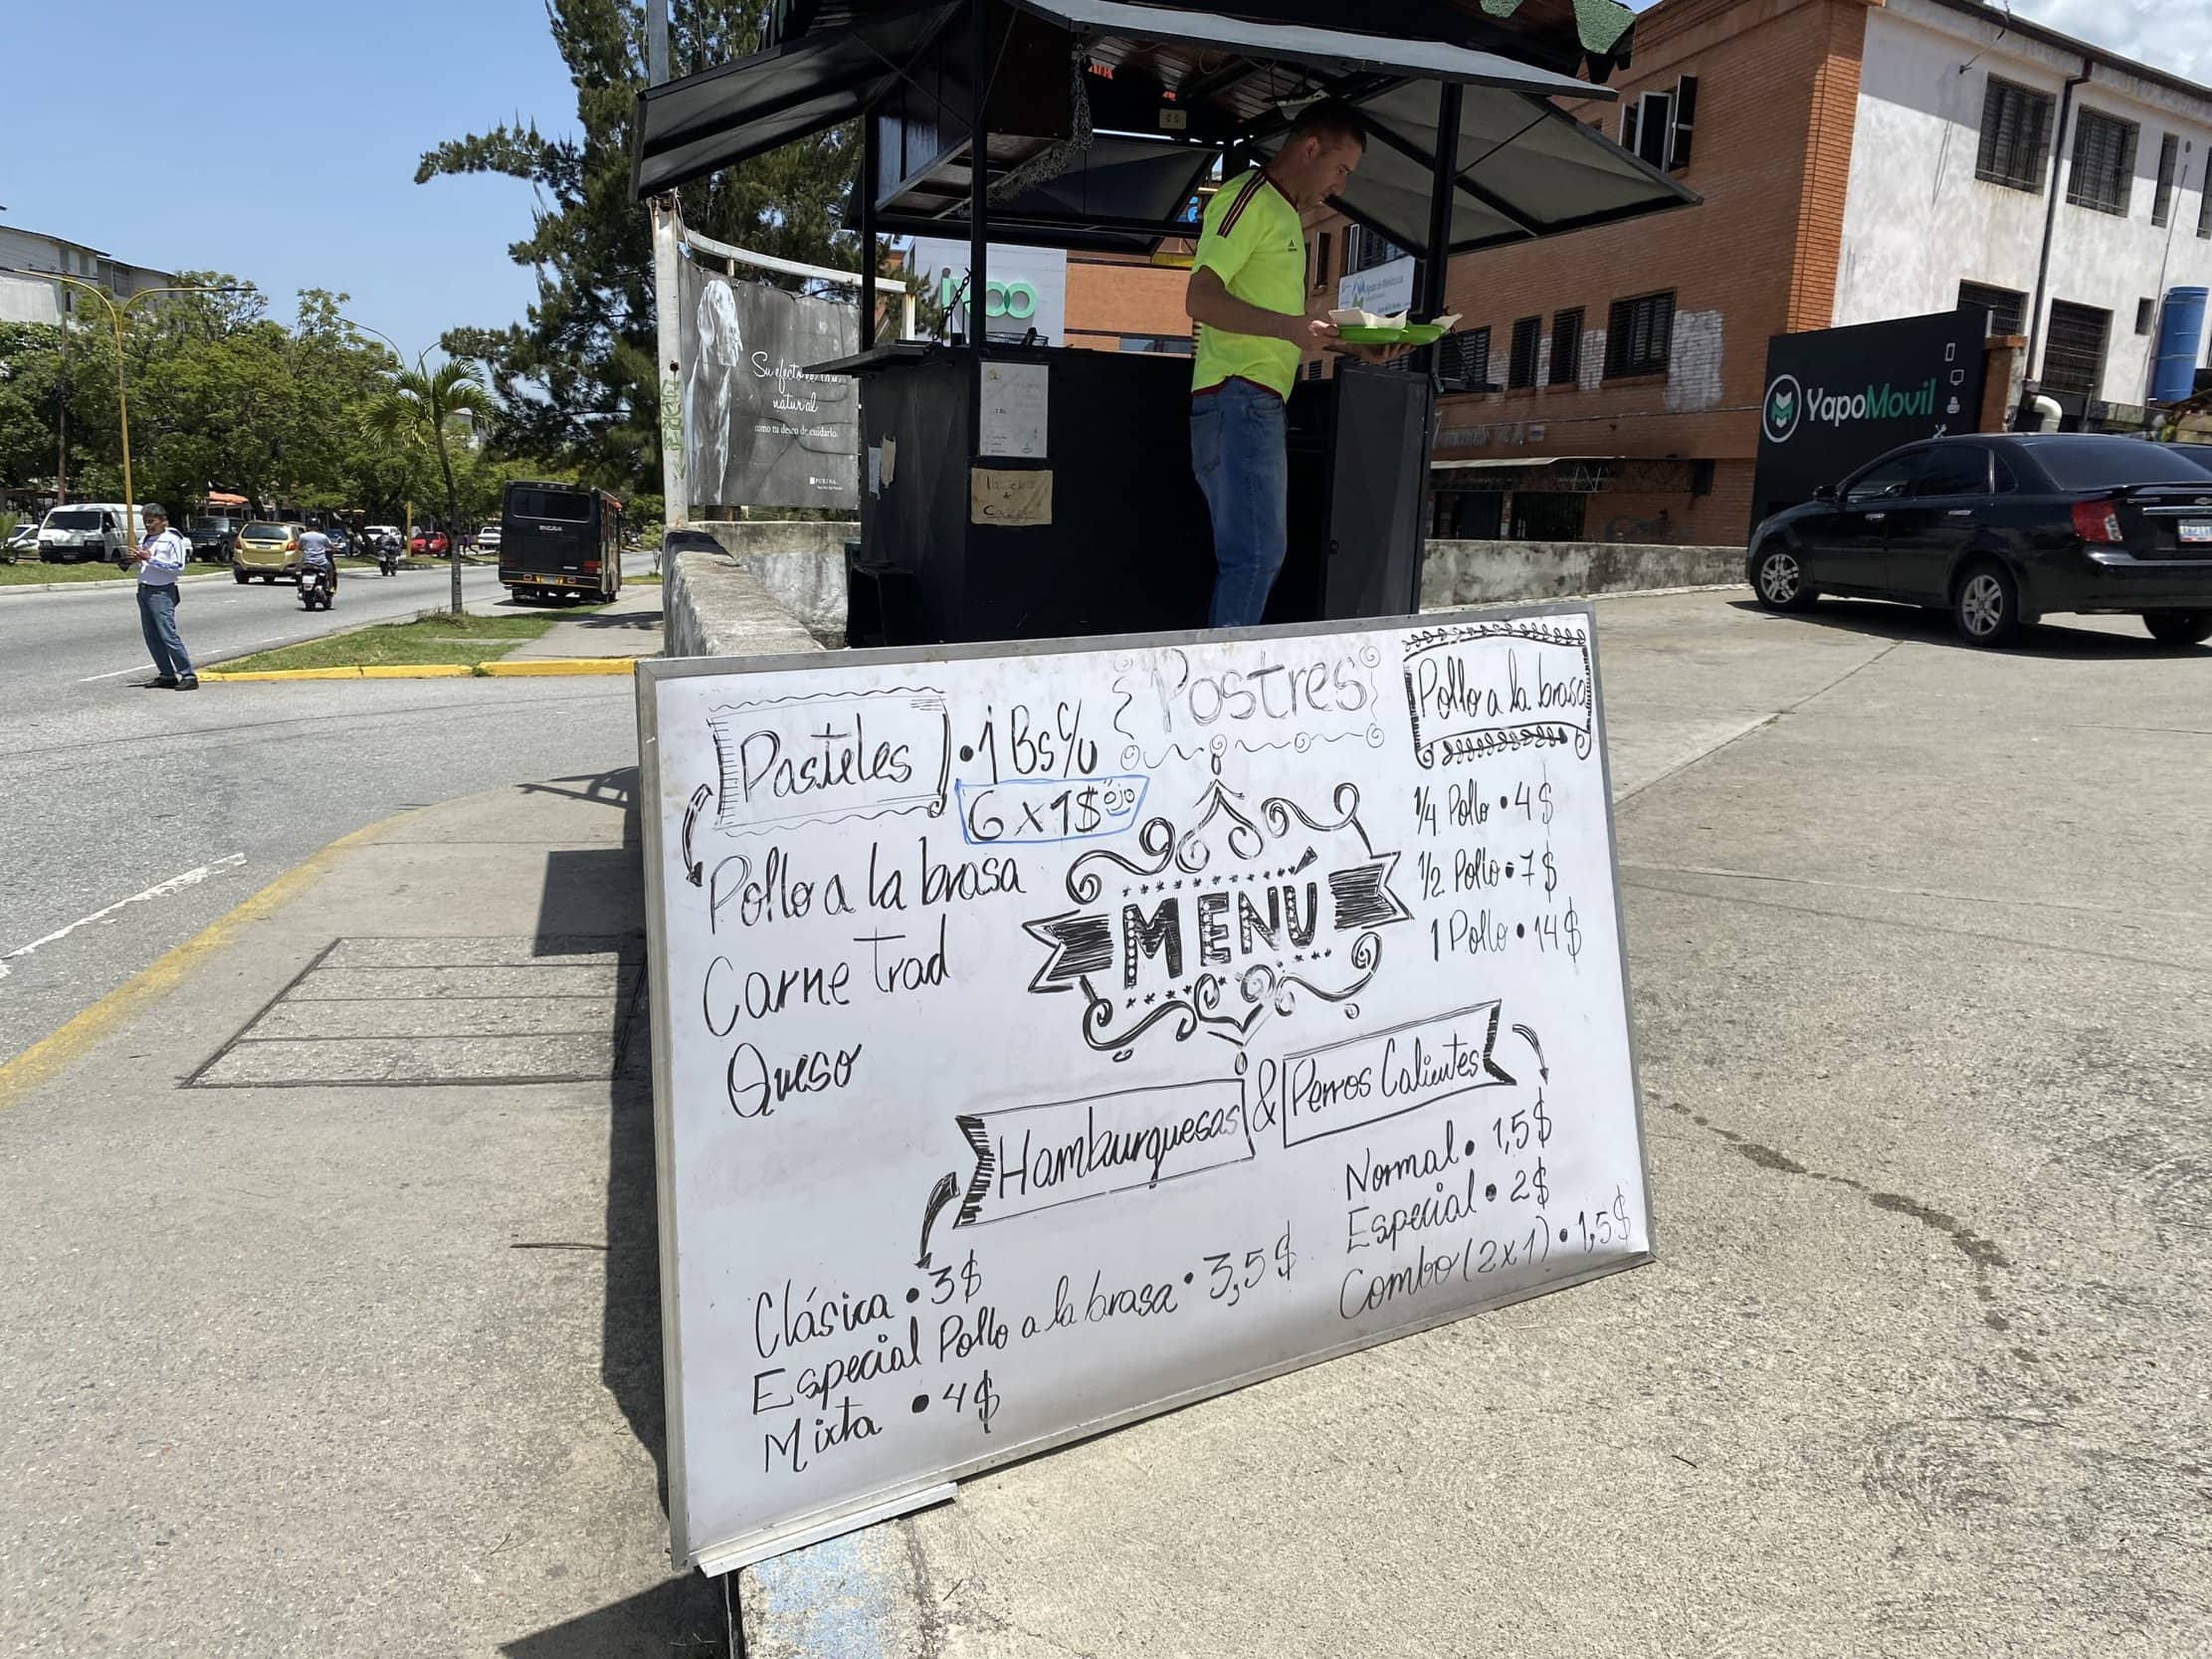 Pasteles
• 1 Bs c/u
6 x 1$ ojo
Pollo a la brasa
Carne Trad
Queso
Postres
MENÚ
Pollo a la brasa
1/4 Pollo • 4$
1/2 Pollo • 7$
1 Pollo • 14$
Hamburguesas & Perros Calientes
Clásica • 3$
Especial Pollo a la brasa • 3,5$
Mixta • 4$
Normal • 1,5$
Especial • 2$
Combo (2x1) • 1,5$
Su efecto
natural
como tu deseo de cuidarlo.
PURINA
YapoMovil
ENCAVA